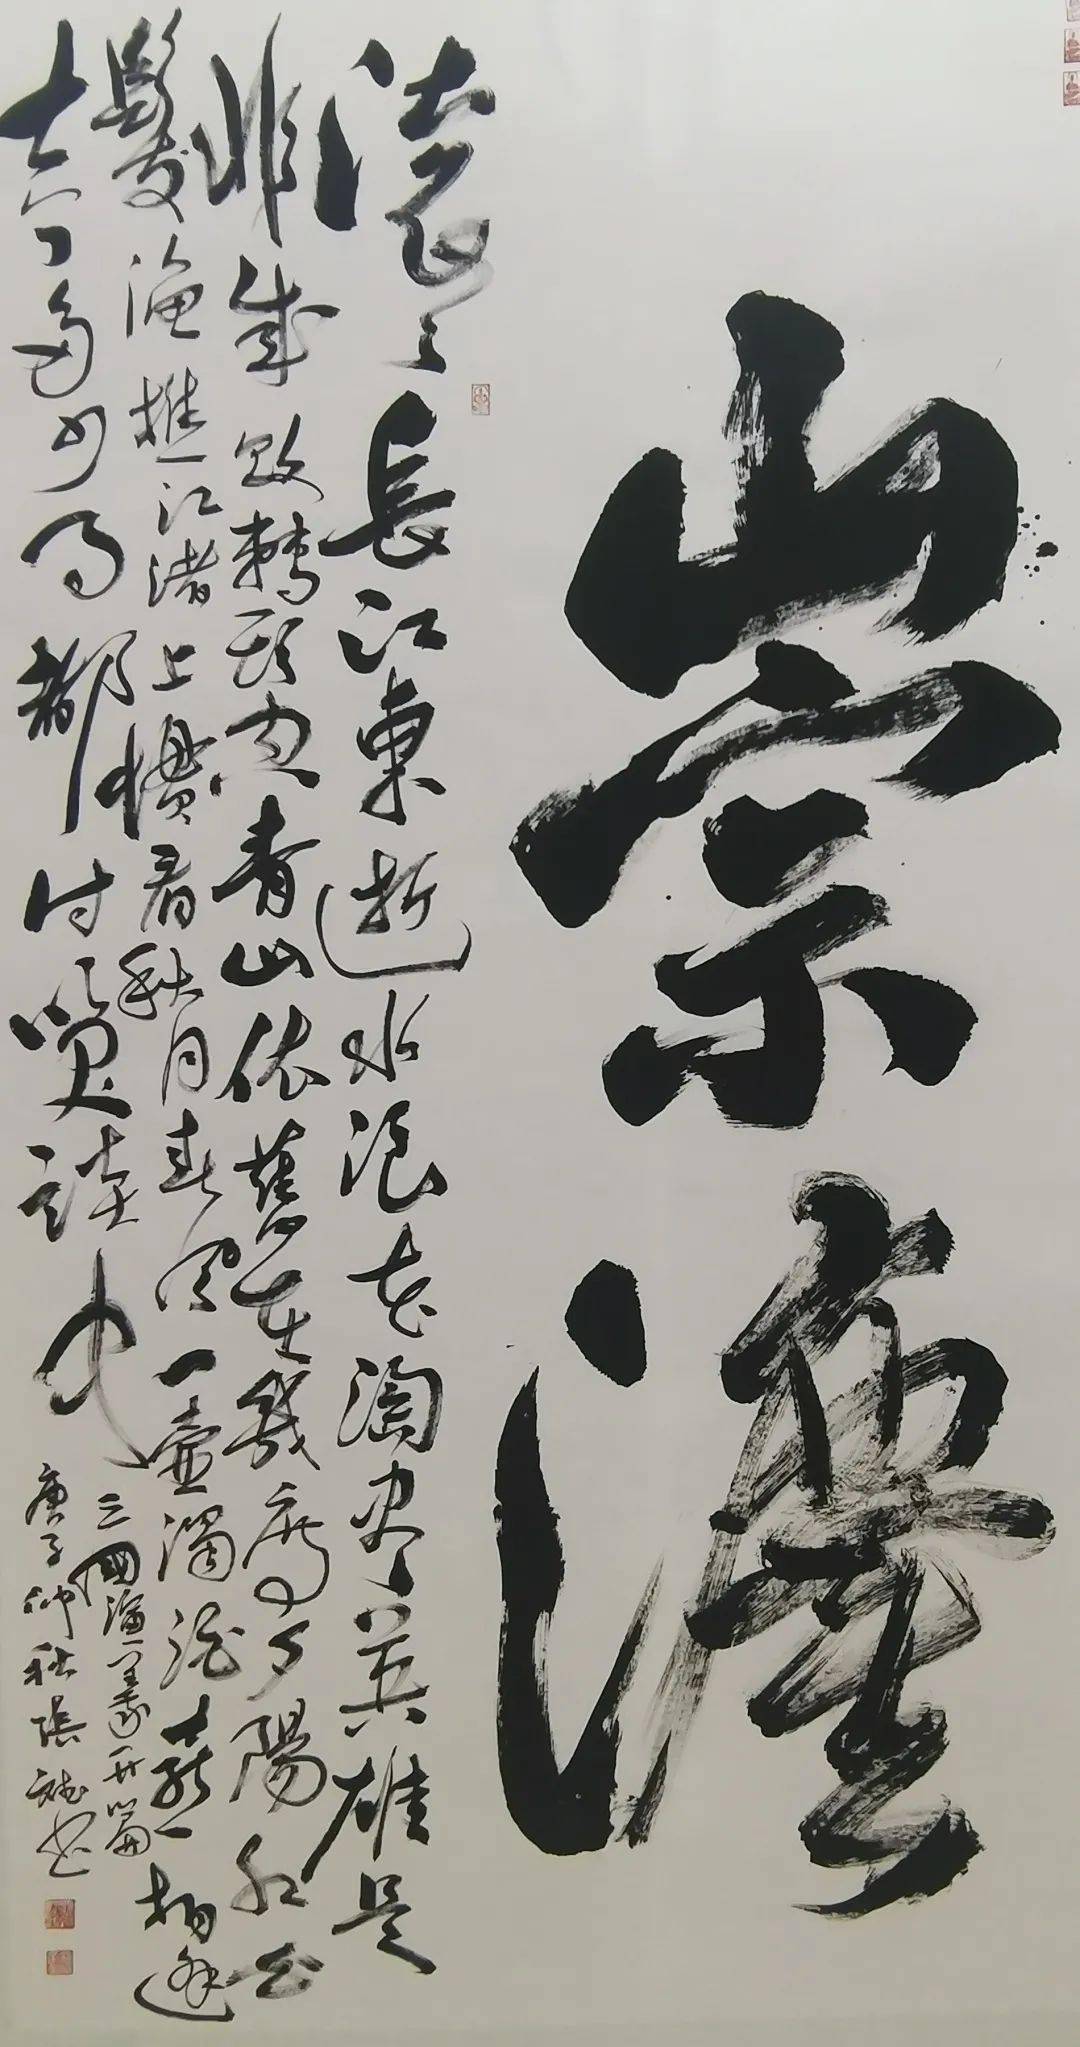 崇
滚滚長江東逝水浪花淘尽英雄是
非成敗轉頭空青山依舊在幾度夕陽紅白
髮漁樵江渚上慣看秋月春風一壺濁酒喜相逢
古今多少事都付笑談中
三國演義开篇
庚子仲秋張書